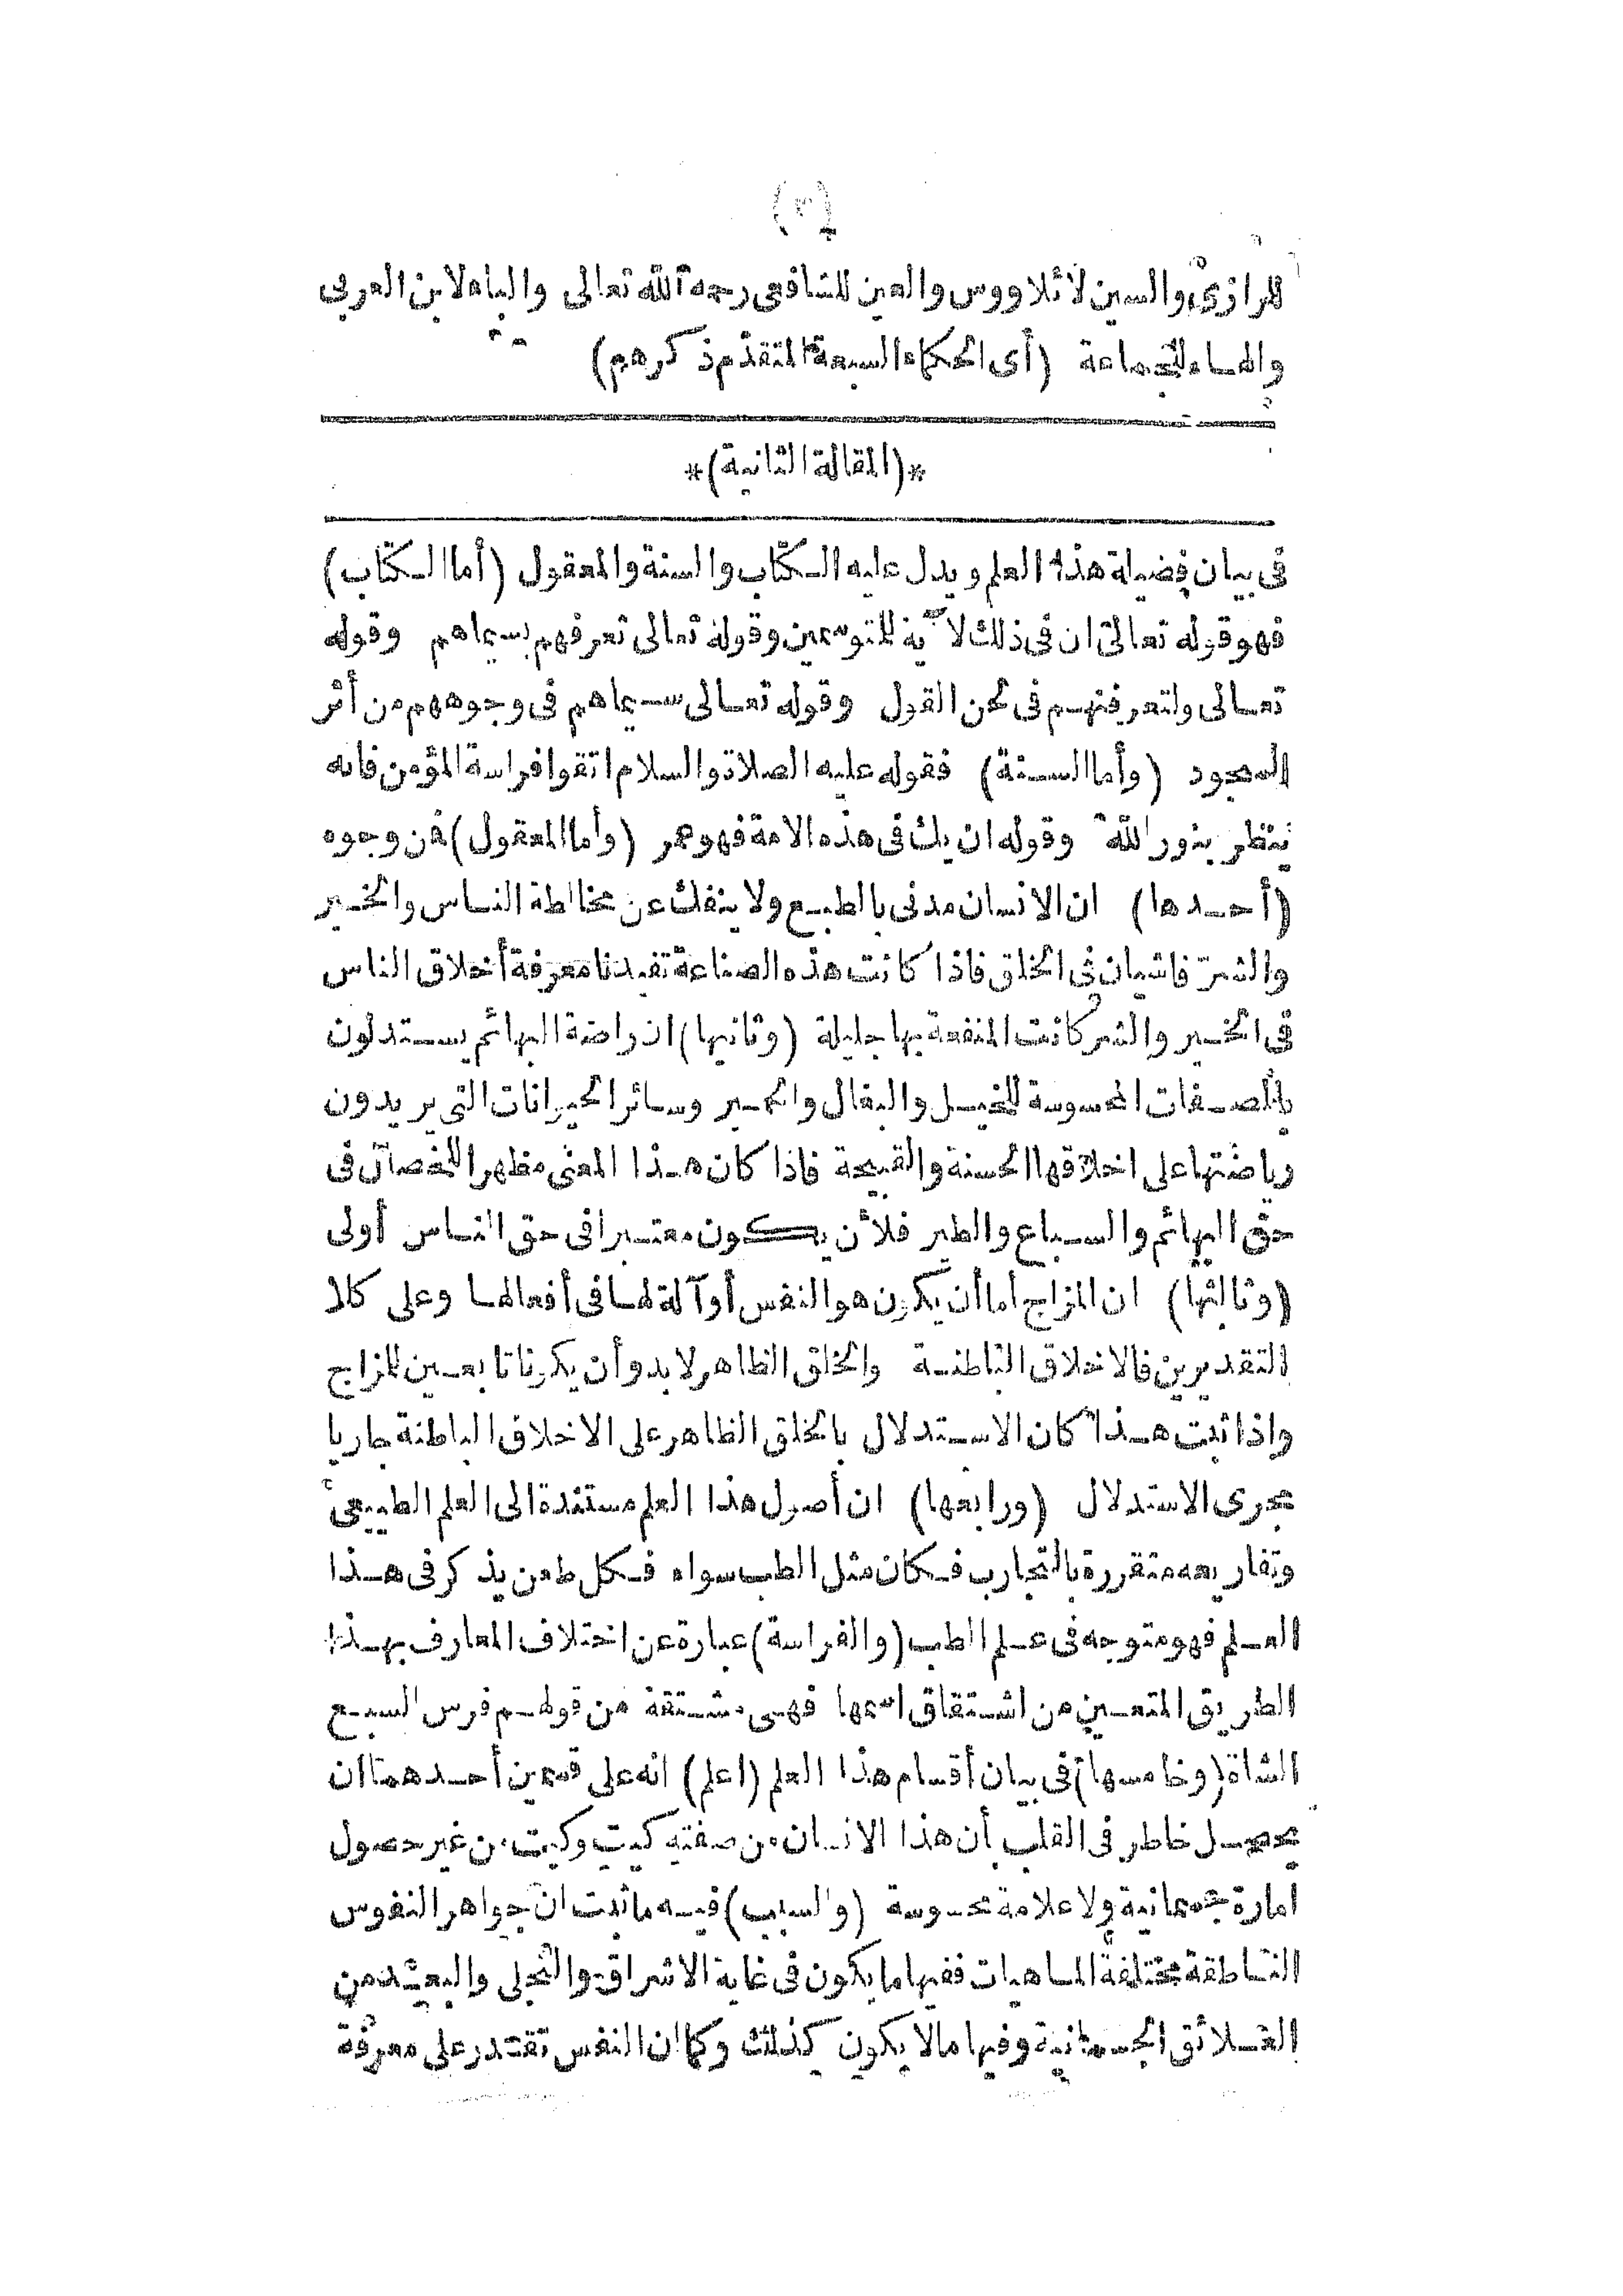 (٣)
للرازي والسين لأثلاووس والعين للشافعي رحمه الله تعالى والباء لابن العربي
والهاء للجماعة (أي الحكماء السبعة المتقدّم ذكرهم)
*(المقالة الثانية)*
في بيان فضيلة هذا العلم ويدل عليه الكتاب والسنة والمعقول (أما الكتاب)
فهو قوله تعالى ان في ذلك لآية للمتوسمين وقوله تعالى تعرفهم بسيماهم وقوله
تعالى ولتعرفنهم في لحن القول وقوله تعالى سيماهم في وجوههم من أثر
السجود (وأما السنة) فقوله عليه الصلاة والسلام اتقوا فراسة المؤمن فانه
ينظر بنور الله وقوله ان يك في هذه الامة فهو عمر (وأما المعقول) فمن وجوه
(أحدها) ان الانسان مدني بالطبع ولا ينفك عن مخالطة الناس والخير
والشرّ فاشيان في الخلق فاذا كانت هذه الصناعة تفيدنا معرفة أخلاق الناس
في الخير والشر كانت المنفعة بها جليلة (وثانيها) ان راضة البهائم يستدلون
بالصفات المحسوسة للخيل والبغال والحمير وسائر الحيوانات التي يريدون
رياضتها على اخلاقها الحسنة والقبيحة فاذا كان هذا المعنى مظهرا للخصال في
حق البهائم والسباع والطير فلأن يكون معتبرا في حق الناس أولى
(وثالثها) ان المزاج أما أن يكون هو النفس أو آلة لها في أفعالها وعلى كلا
التقديرين فالاخلاق الباطنة والخلق الظاهر لا بد وأن يكونا تابعين للمزاج
واذا ثبت هذا كان الاستدلال بالخلق الظاهر على الاخلاق الباطنة جاريا
مجرى الاستدلال (ورابعها) ان أصول هذا العلم مستندة الى العلم الطبيعي
وتفاريعه متقررة بالتجارب فكان مثل الطب سواء فكل طعن يذكر في هذا
العلم فهو متوجه في علم الطب (والفراسة) عبارة عن اختلاف المعارف بهذا
الطريق المتعين من اشتقاق اسمها فهي مشتقة من قولهم فرس السبع
الشاة (وخامسها) في بيان أقسام هذا العلم (اعلم) انه على قسمين أحدهما ان
يحصل خاطر في القلب أن هذا الانسان من صفته كيت وكيت من غير حصول
امارة جسمانية ولا علامة محسوسة (والسبب) فيه ما ثبت ان جواهر النفوس
الناطقة مختلفة الماهيات ففيها ما يكون في غاية الاشراق والتجلى والبعد من
العلائق الجسمانية وفيها ما لا يكون كذلك وكما ان النفس تقتدر على معرفة